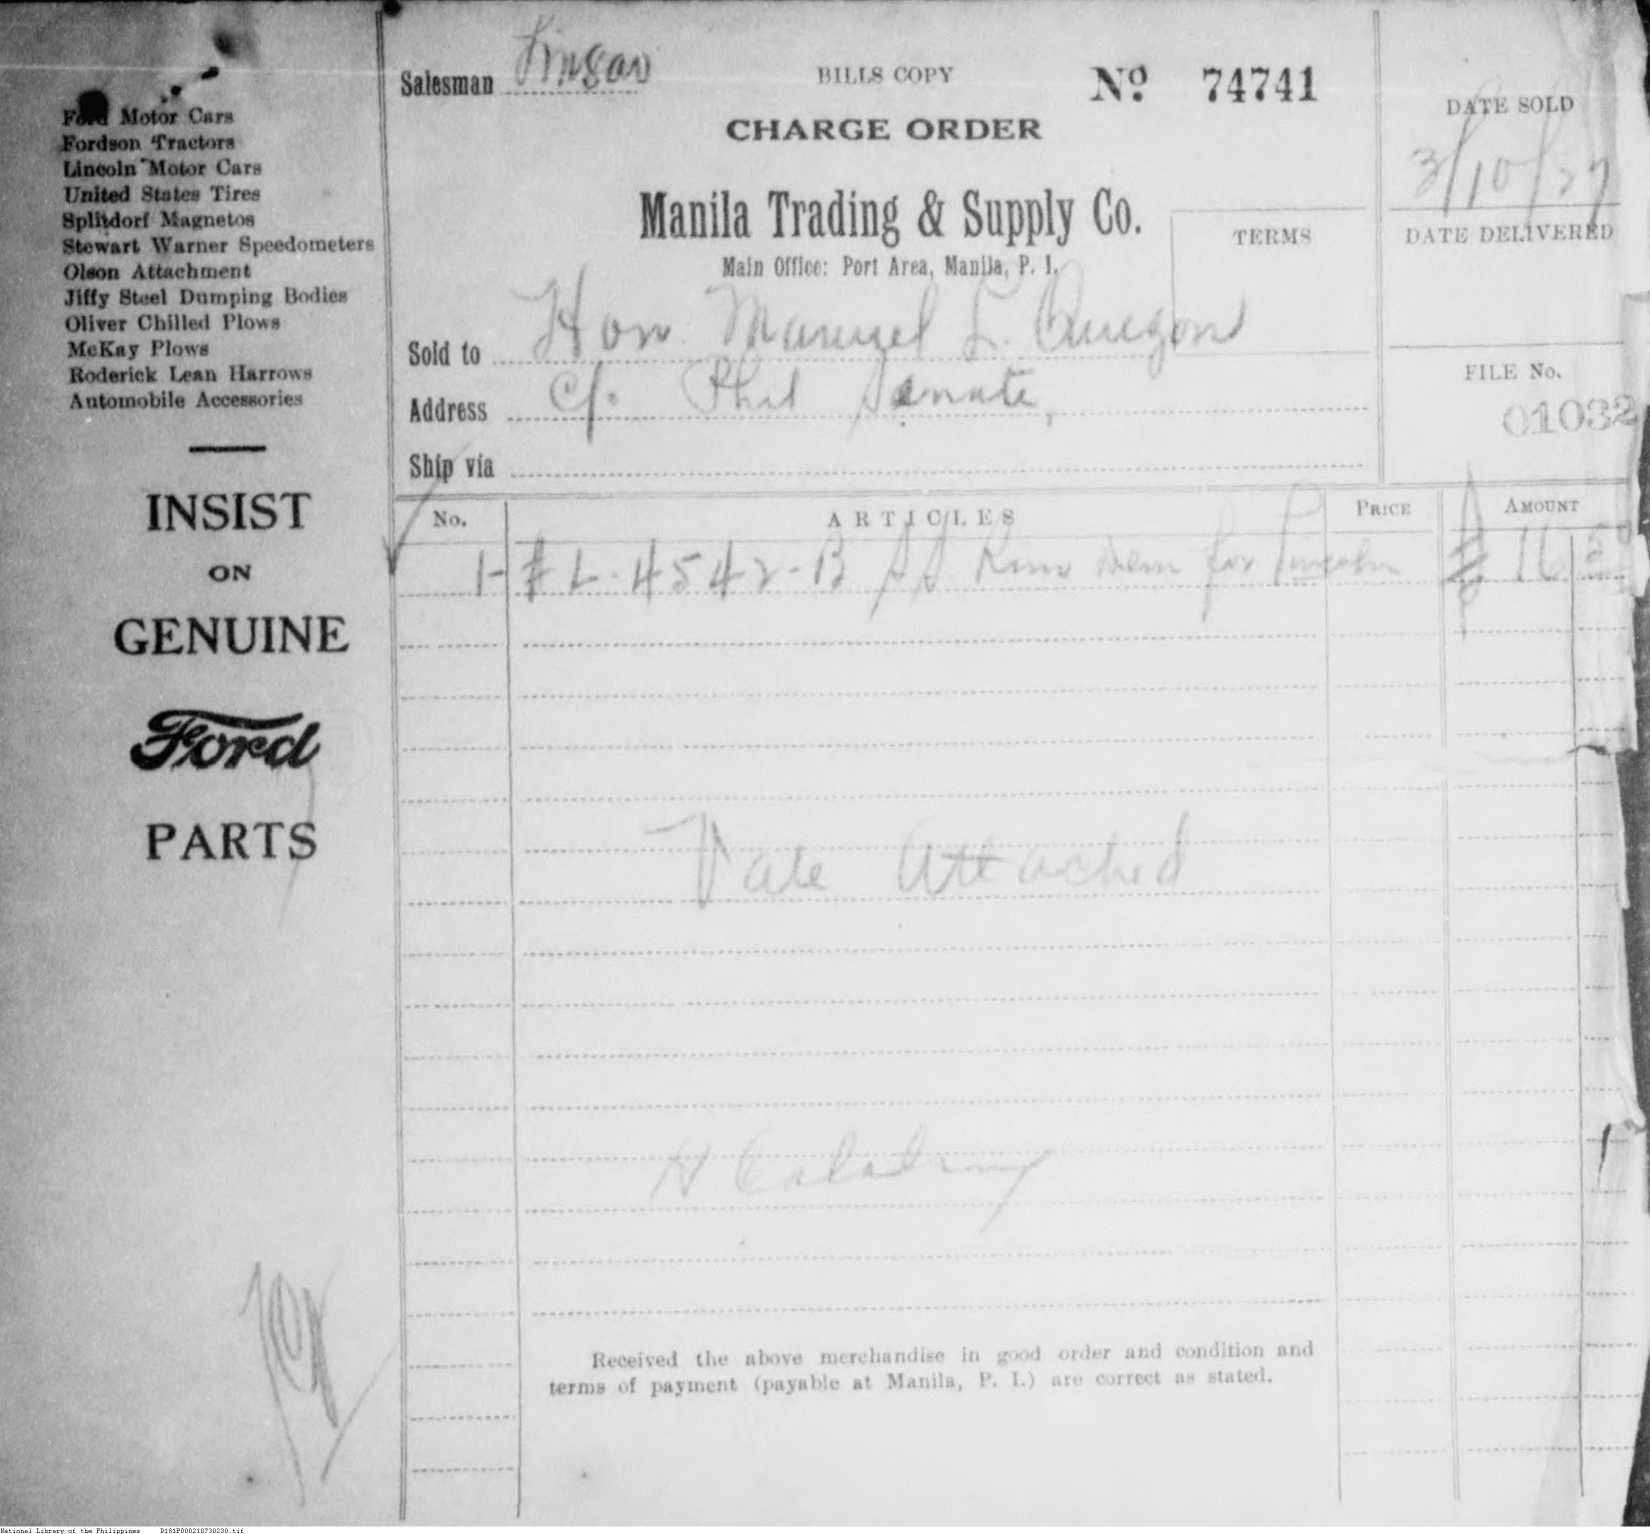 Salesman
BILLS COPY
No. 74741
CHARGE ORDER
Manila Trading & Supply Co.
Main Office: Port Area, Manila, P. I.
DATE SOLD
3/10/27
TERMS
DATE DELIVERED
Sold to Hon. Manuel L. Quezon
Address c/o Phil Senate,
Ship via
FILE No.
01032
Ford Motor Cars
Fordson Tractors
Lincoln Motor Cars
United States Tires
Splitdorf Magnetos
Stewart Warner Speedometers
Olson Attachment
Jiffy Steel Dumping Bodies
Oliver Chilled Plows
McKay Plows
Roderick Lean Harrows
Automobile Accessories
INSIST
ON
GENUINE
Ford
PARTS
No. ARTICLES PRICE AMOUNT
1- # L-4542-B for Lincoln 16
Vale Attached
Received the above merchandise in good order and condition and
terms of payment (payable at Manila, P. I.) are correct as stated.
National Library of the Philippines D181P000210730230.tif